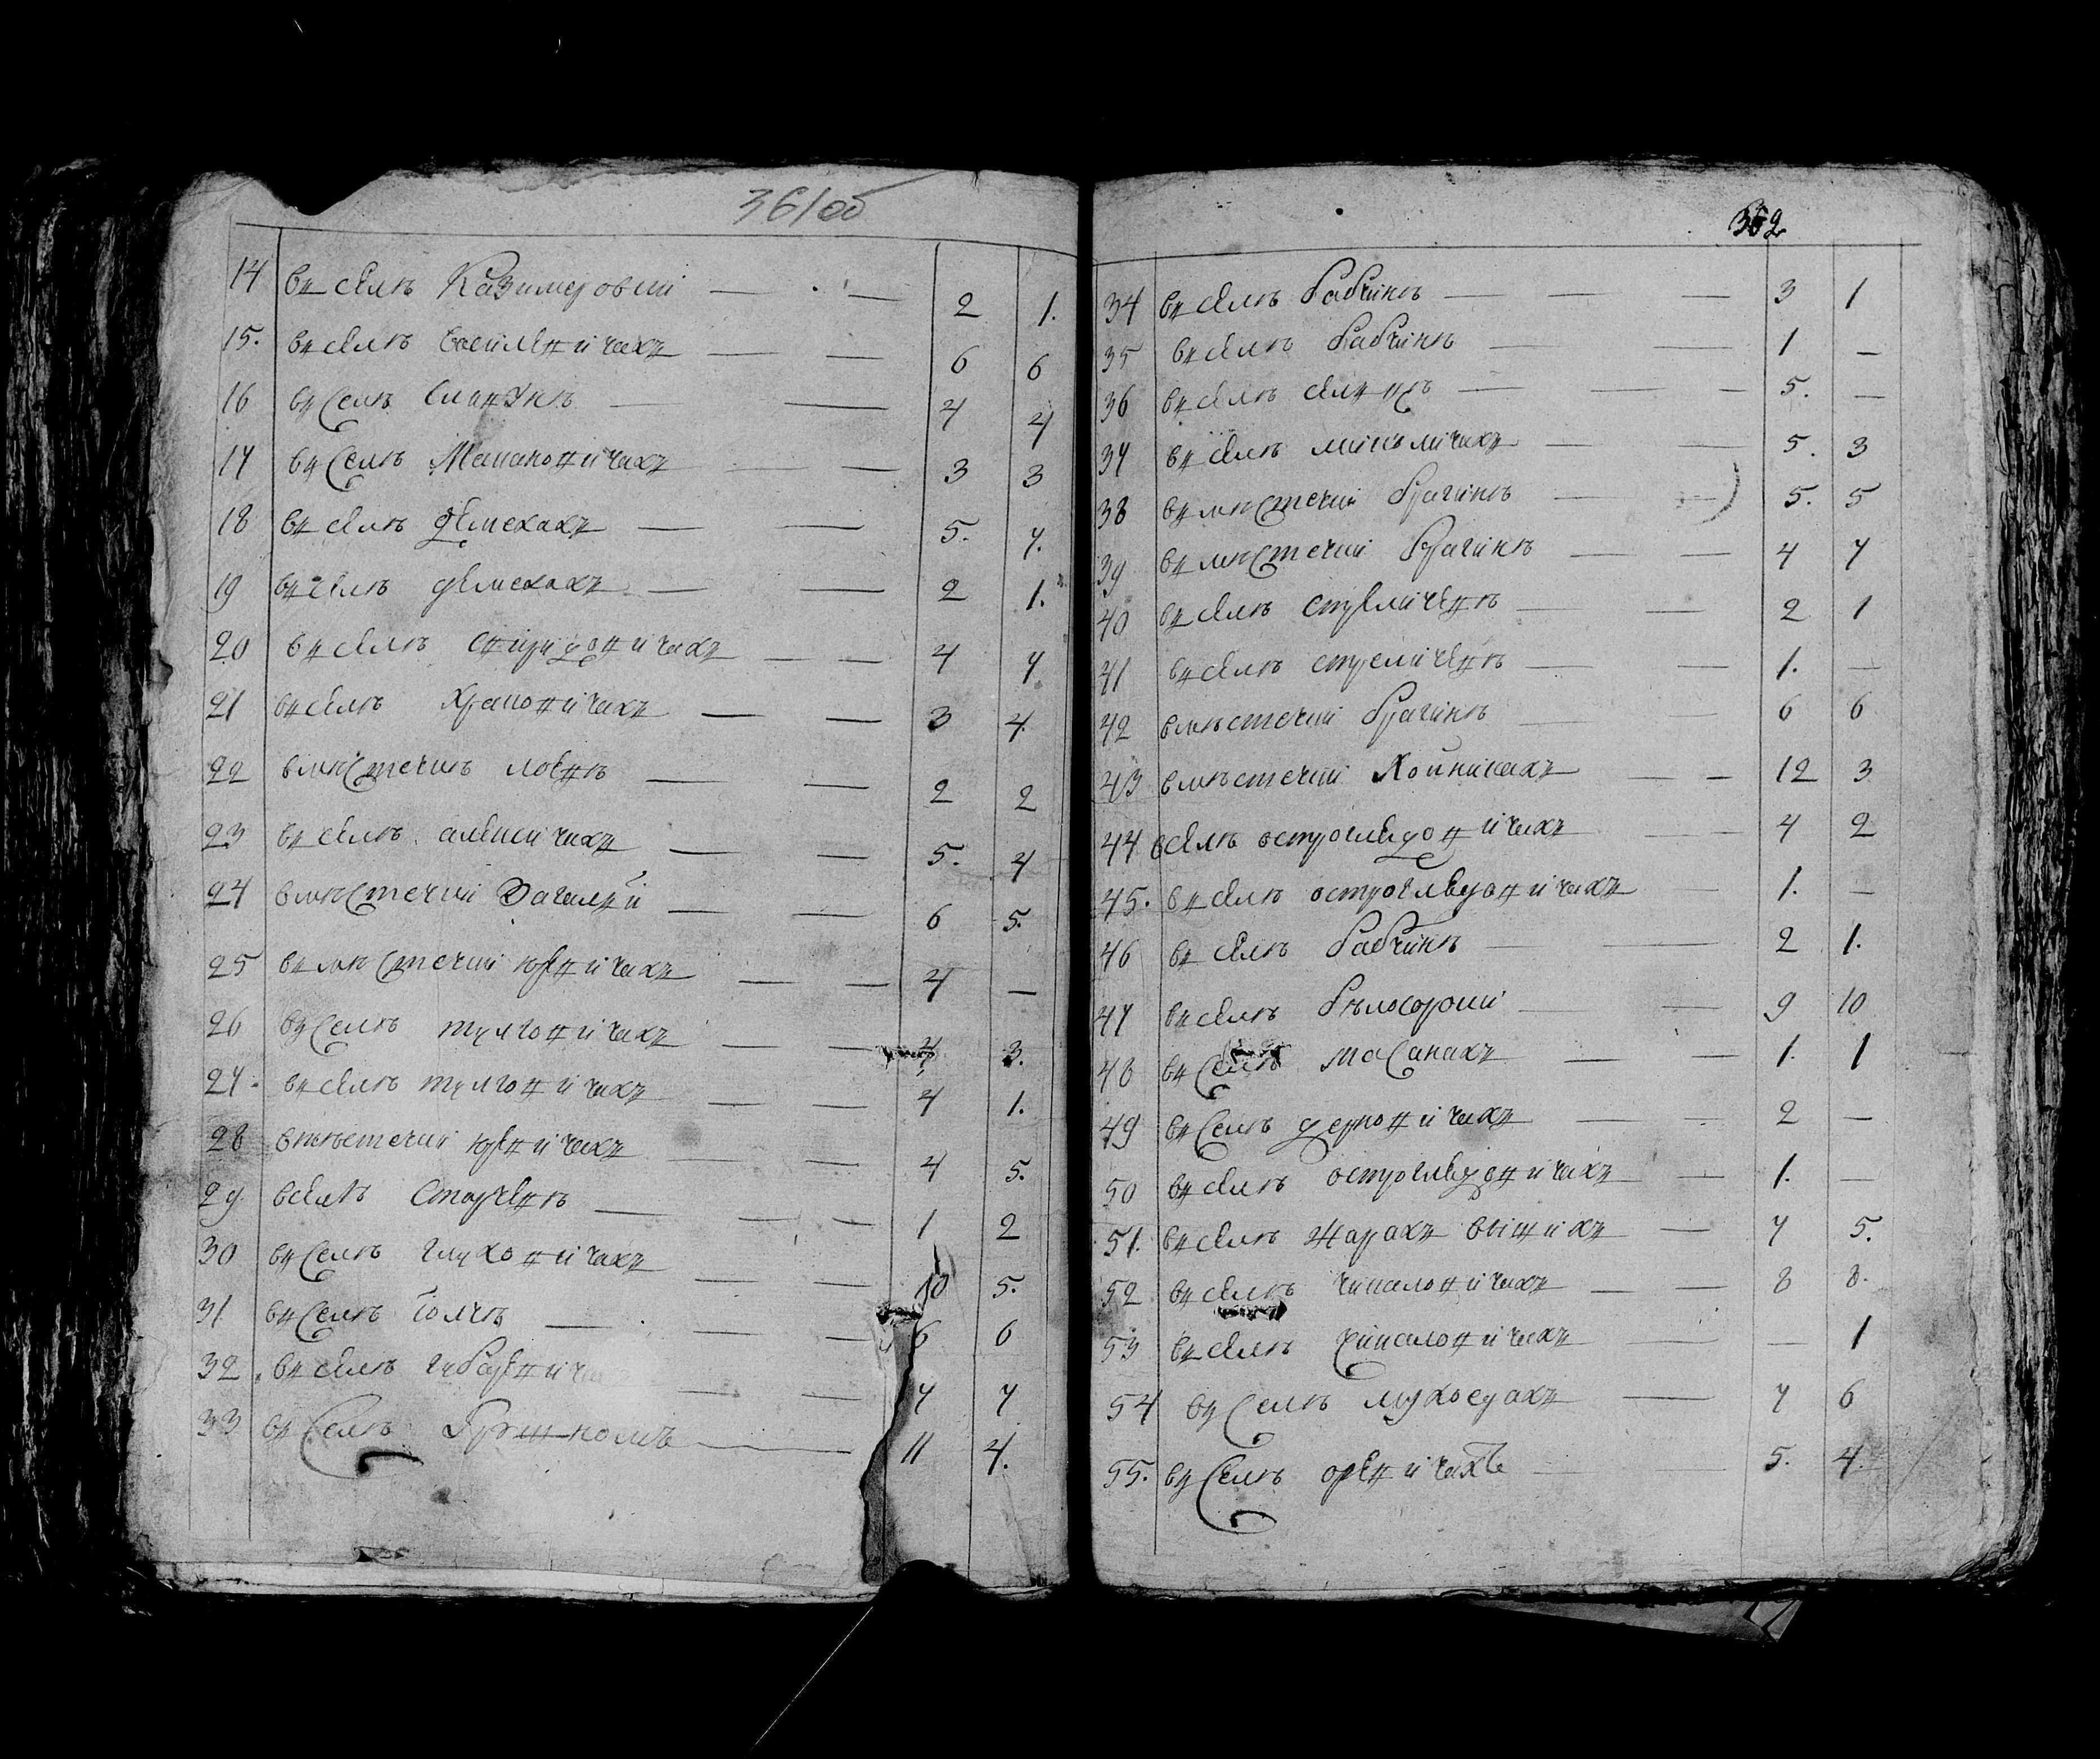 361об
14 въ селѣ Казимеровки — — 2 1.
15. въ селѣ василевичахъ — — 6 6
16 въ селѣ — — 4 4
17 въ селѣ Макановичахъ — — 3 3
18 въ селѣ демехахъ — — 5. 7.
19 въ селѣ демехахъ — — 2 1.
20 въ селѣ свиридовичахъ — — 4 7
21 въ селѣ Храковичахъ — — 3 4.
22 вмѣстечкѣ лоевѣ — — 2 2
23 въ селѣ алексичахъ — — 5. 4
24 вмѣстечки Загалъи — — 6 5.
25 въ мѣстечки юревичахъ — — 4 —
26 въ селѣ тулговичахъ — — 3.
27. въ селѣ тулговичахъ — — 4 1.
28 вмѣстечки юревичахъ — — 4 5.
29 вселѣ Сторчевѣ — — — 1 2
30 въ селѣ глуховичахъ — — 10 5.
31 въ селѣ — — — 6 6
32. въ селѣ — — 7 7
33 въ селѣ — 11 4.
362
34 въ селѣ бабчинѣ — — — 3 1
35 въ селѣ бабчинѣ — — 1 —
36 въ селѣ — — — 5. —
37 въ селѣ микуличахъ — — 5. 3
38 въ мѣстечки брагинѣ — — 5. 5
39 въ мѣстечки брагинѣ — — 4 7
40 въ селѣ стреличевѣ — — 2 1
41 въ селѣ стреличевѣ — — 1. —
42 вмѣстечки брагинѣ — — 6 6
43 вмѣстечки Хойникахъ — — 12 3
44 вселѣ острогледовичахъ — 4 2
45. въ селѣ острогледовичахъ — 1. —
46 въ селѣ бабчинѣ — — 2 1.
47 въ селѣ бѣлосороки — — 9 10
48 въ селѣ масанахъ — — 1. 1
49 въ селѣ дерновичахъ — — 2 —
50 въ селѣ острогледовичахъ — 1. —
51. въ селѣ жарахъ вышихъ — 7 5.
52 въ селѣ чикаловичахъ — — 8 8.
53 въ селѣ чикаловичахъ — — 1
54 въ селѣ мухоедахъ — 7 6
55. въ селѣ оревичахъ — 5. 4.